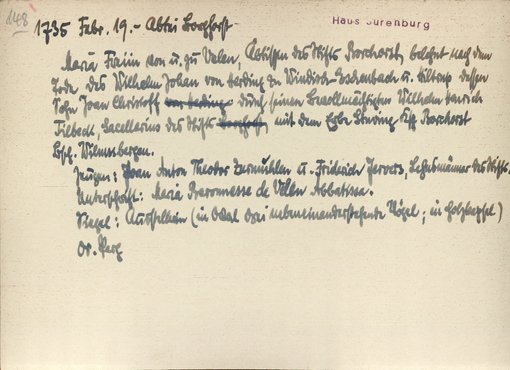 148
Haus Surenburg
1735 Febr. 19.- Abtei Borchorst
Maria Freiin von u. zu Velen, Äbtissin des Stifts Borchorst, belehnt nach dem
Tode des Wilhelm Johan von Herding zu Windisch-Eschenbach u. Hiltrup dessen
Sohn Joan Christoff von Herding durch seinen Bevollmächtigten Wilhelm Henrich
Filbeck, Sacellarius des Stifts Borchorst, mit dem Erbe Ksp. Borchorst
Bsch. Wilmsbergen.
Zeugen: Joan Anton Theodor Zurmühlen u. Friderich Jervers, Lehnsmänner des Stifts.
Unterschrift: Maria Baronnesse de Velen Abbatissa.
Siegel: (in Oval drei nebeneinanderstehende Vögel; in Holzkapsel)
Or. Perg